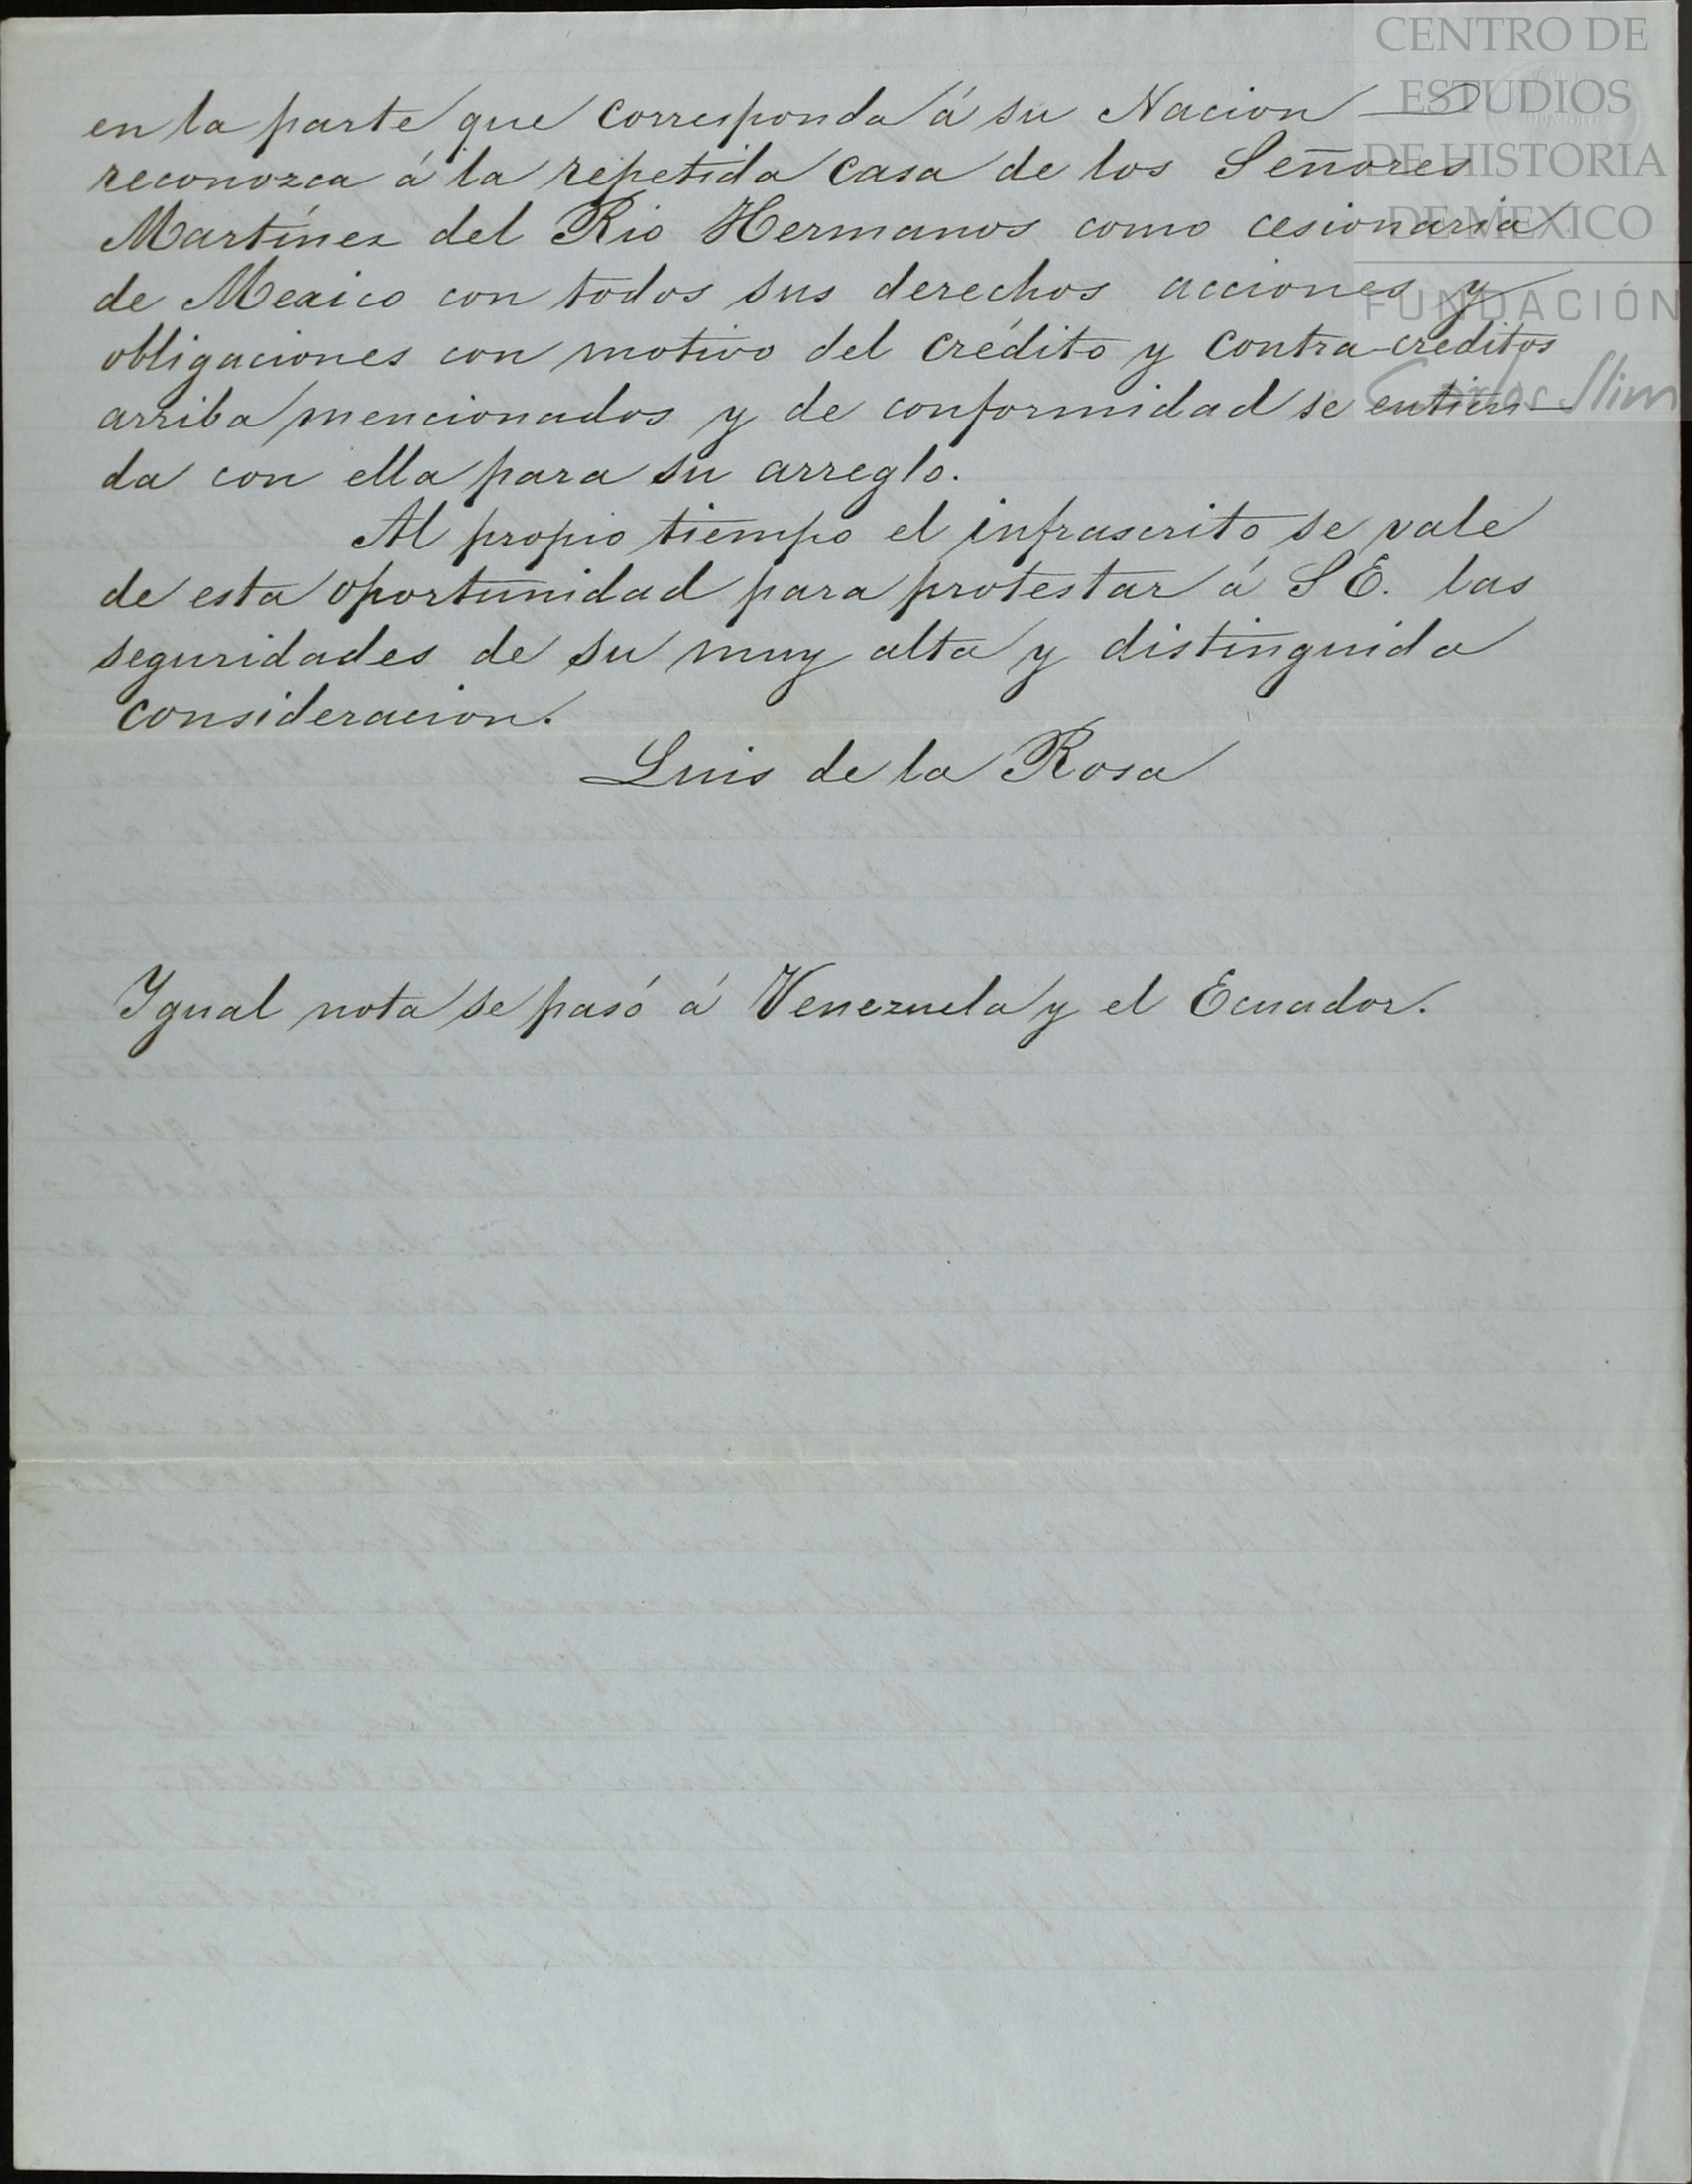 CENTRO DE
ESTUDIOS
DE HISTORIA
DE MEXICO
FUNDACIÓN
Carlos Slim
en la parte que corresponda á su Nacion
reconozca á la repetida casa de los Señores
Martínez del Rio Hermanos como cesionaria
de Mexico con todos sus derechos acciones y
obligaciones con motivo del crédito y contra-creditos
arriba mencionados y de conformidad se entien-
da con ella para su arreglo.
Al propio tiempo el infrascrito se vale
de esta oportunidad para protestar á S E. las
seguridades de su muy alta y distinguida
consideracion.
Luis de la Rosa
Igual nota se pasó á Venezuela y el Ecuador.